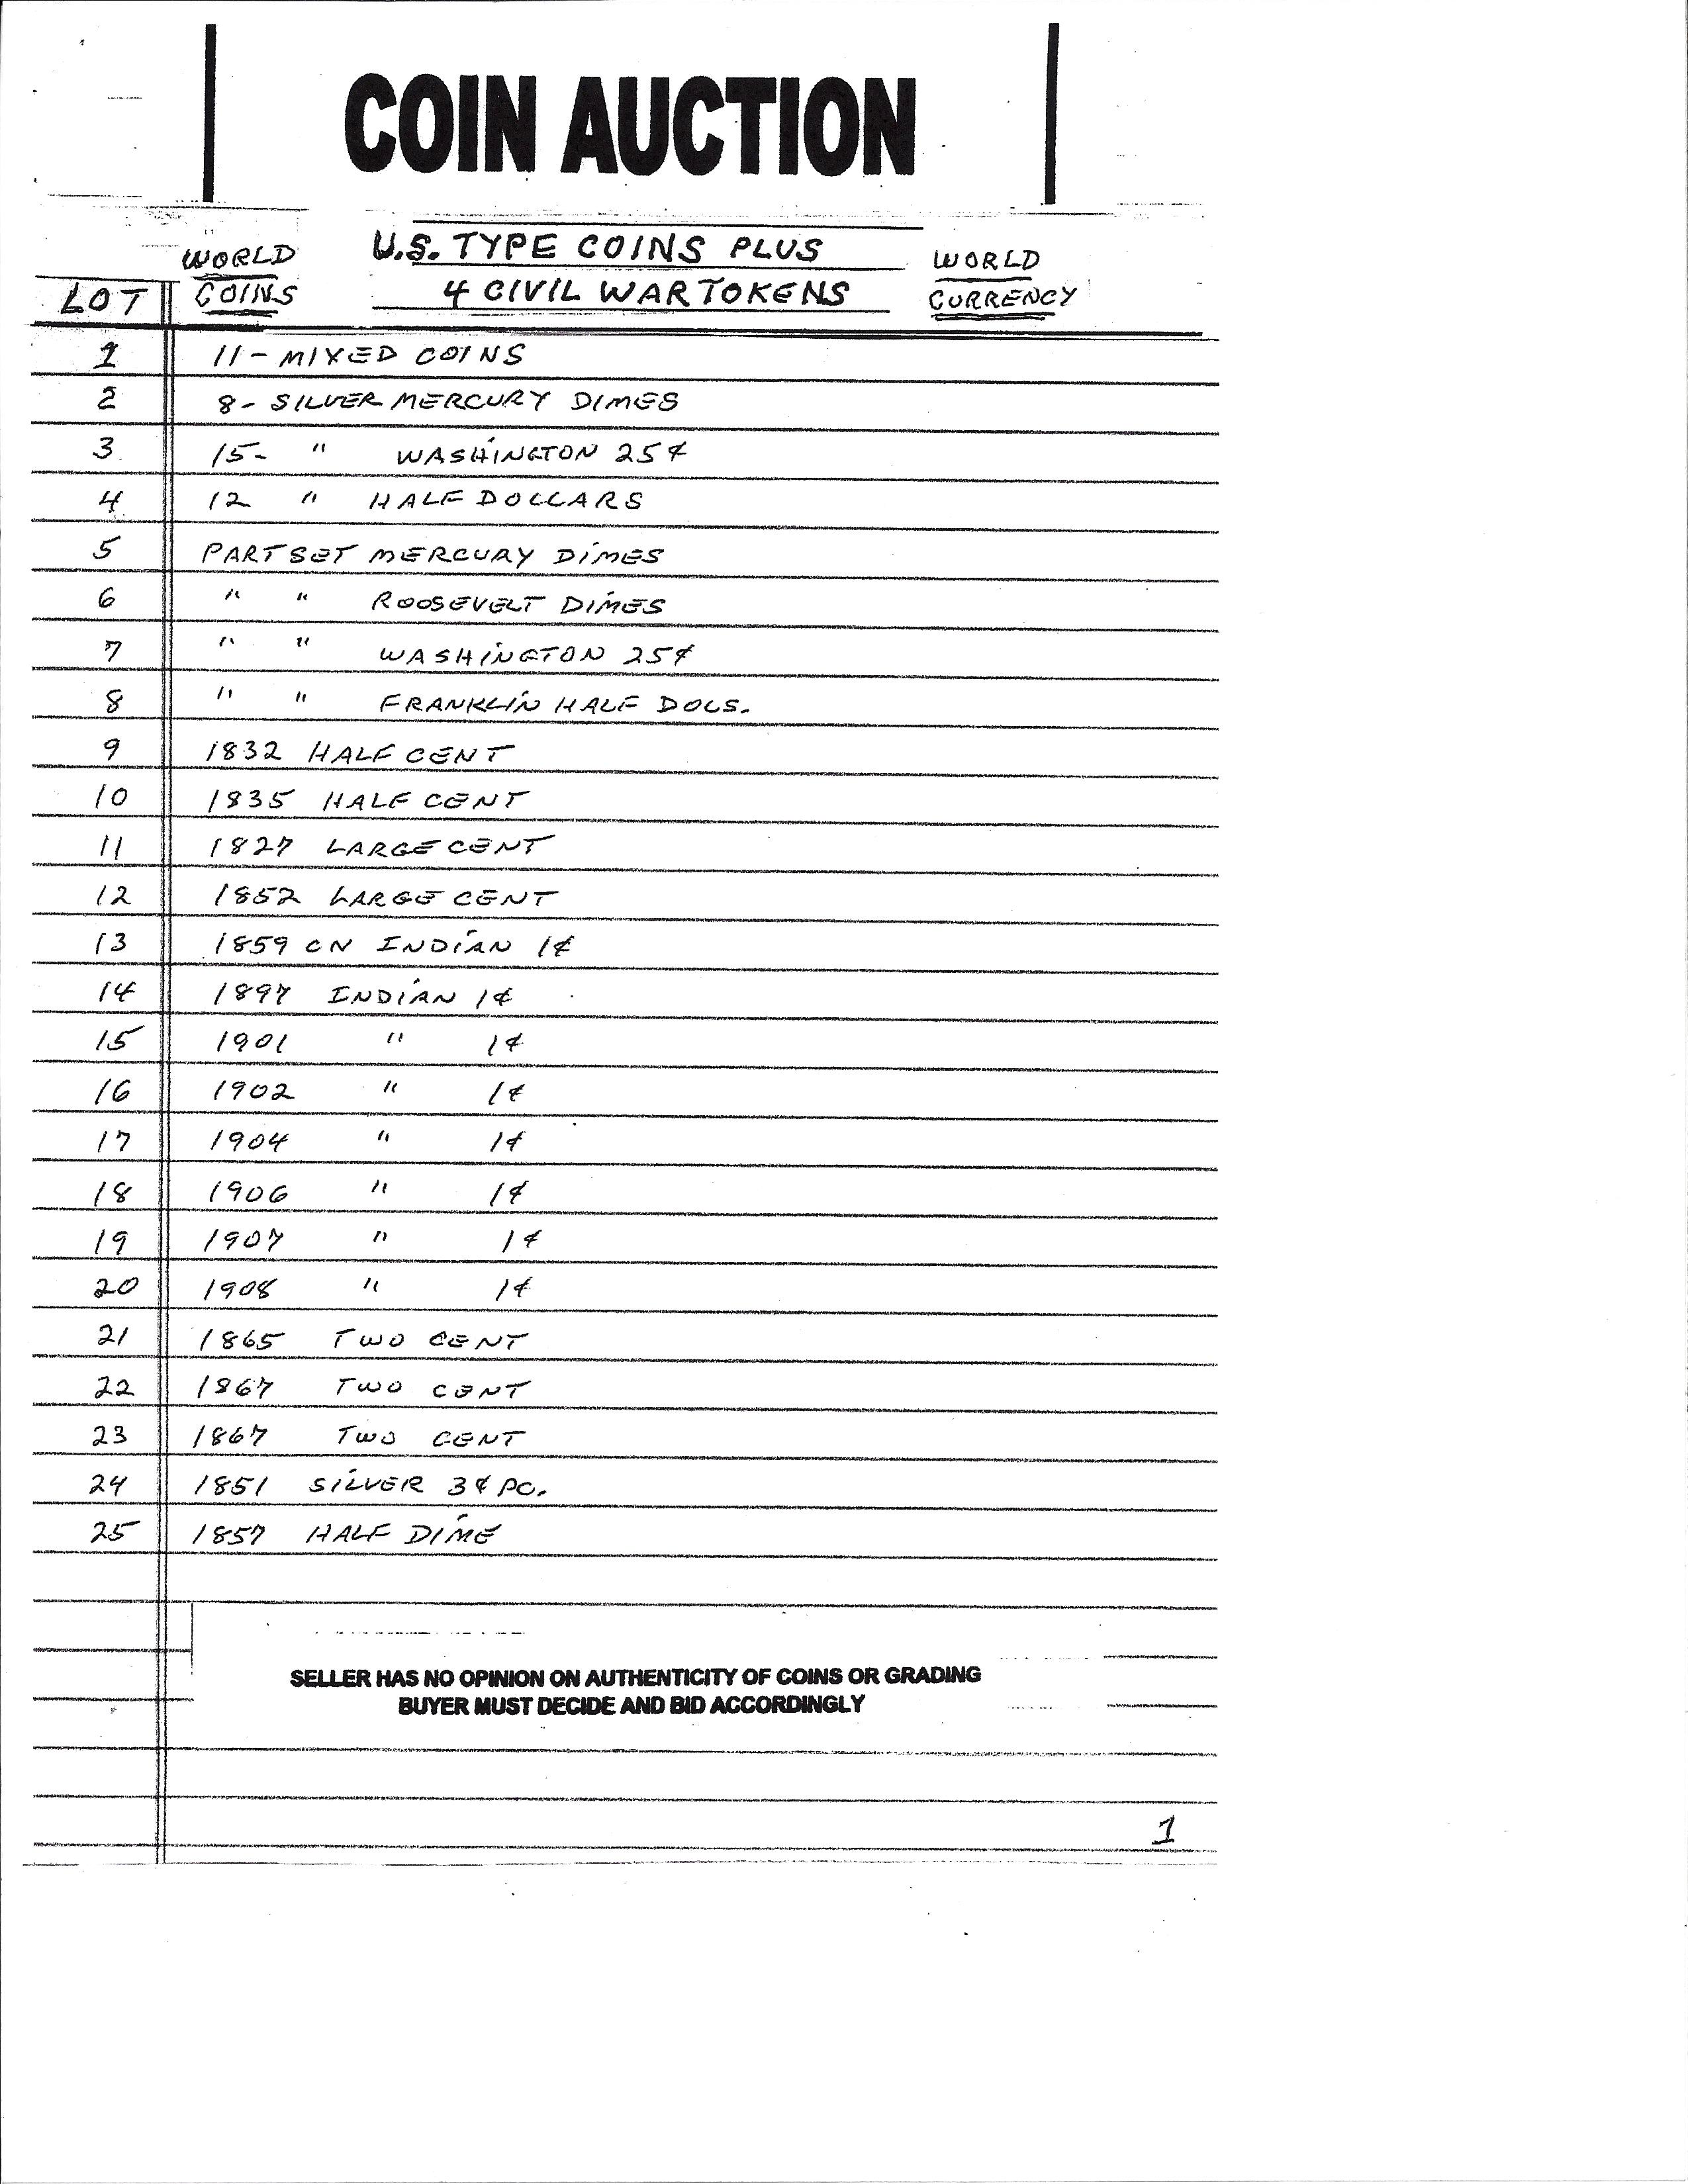 COIN AUCTION
WORLD COINS
U.S. TYPE COINS PLUS
4 CIVIL WAR TOKENS
WORLD CURRENCY
LOT
1 11- MIXED COINS
2 8- SILVER MERCURY DIMES
3 15- " WASHINGTON 25¢
4 12 " HALF DOLLARS
5 PART SET MERCURY DIMES
6 " " ROOSEVELT DIMES
7 " " WASHINGTON 25¢
8 " " FRANKLIN HALF DOLS.
9 1832 HALF CENT
10 1835 HALF CENT
11 1827 LARGE CENT
12 1852 LARGE CENT
13 1859 CN INDIAN 1¢
14 1897 INDIAN 1¢
15 1901 " 1¢
16 1902 " 1¢
17 1904 " 1¢
18 1906 " 1¢
19 1907 " 1¢
20 1908 " 1¢
21 1865 TWO CENT
22 1867 TWO CENT
23 1867 TWO CENT
24 1851 SILVER 3¢ PC.
25 1857 HALF DIME
SELLER HAS NO OPINION ON AUTHENTICITY OF COINS OR GRADING
BUYER MUST DECIDE AND BID ACCORDINGLY
1